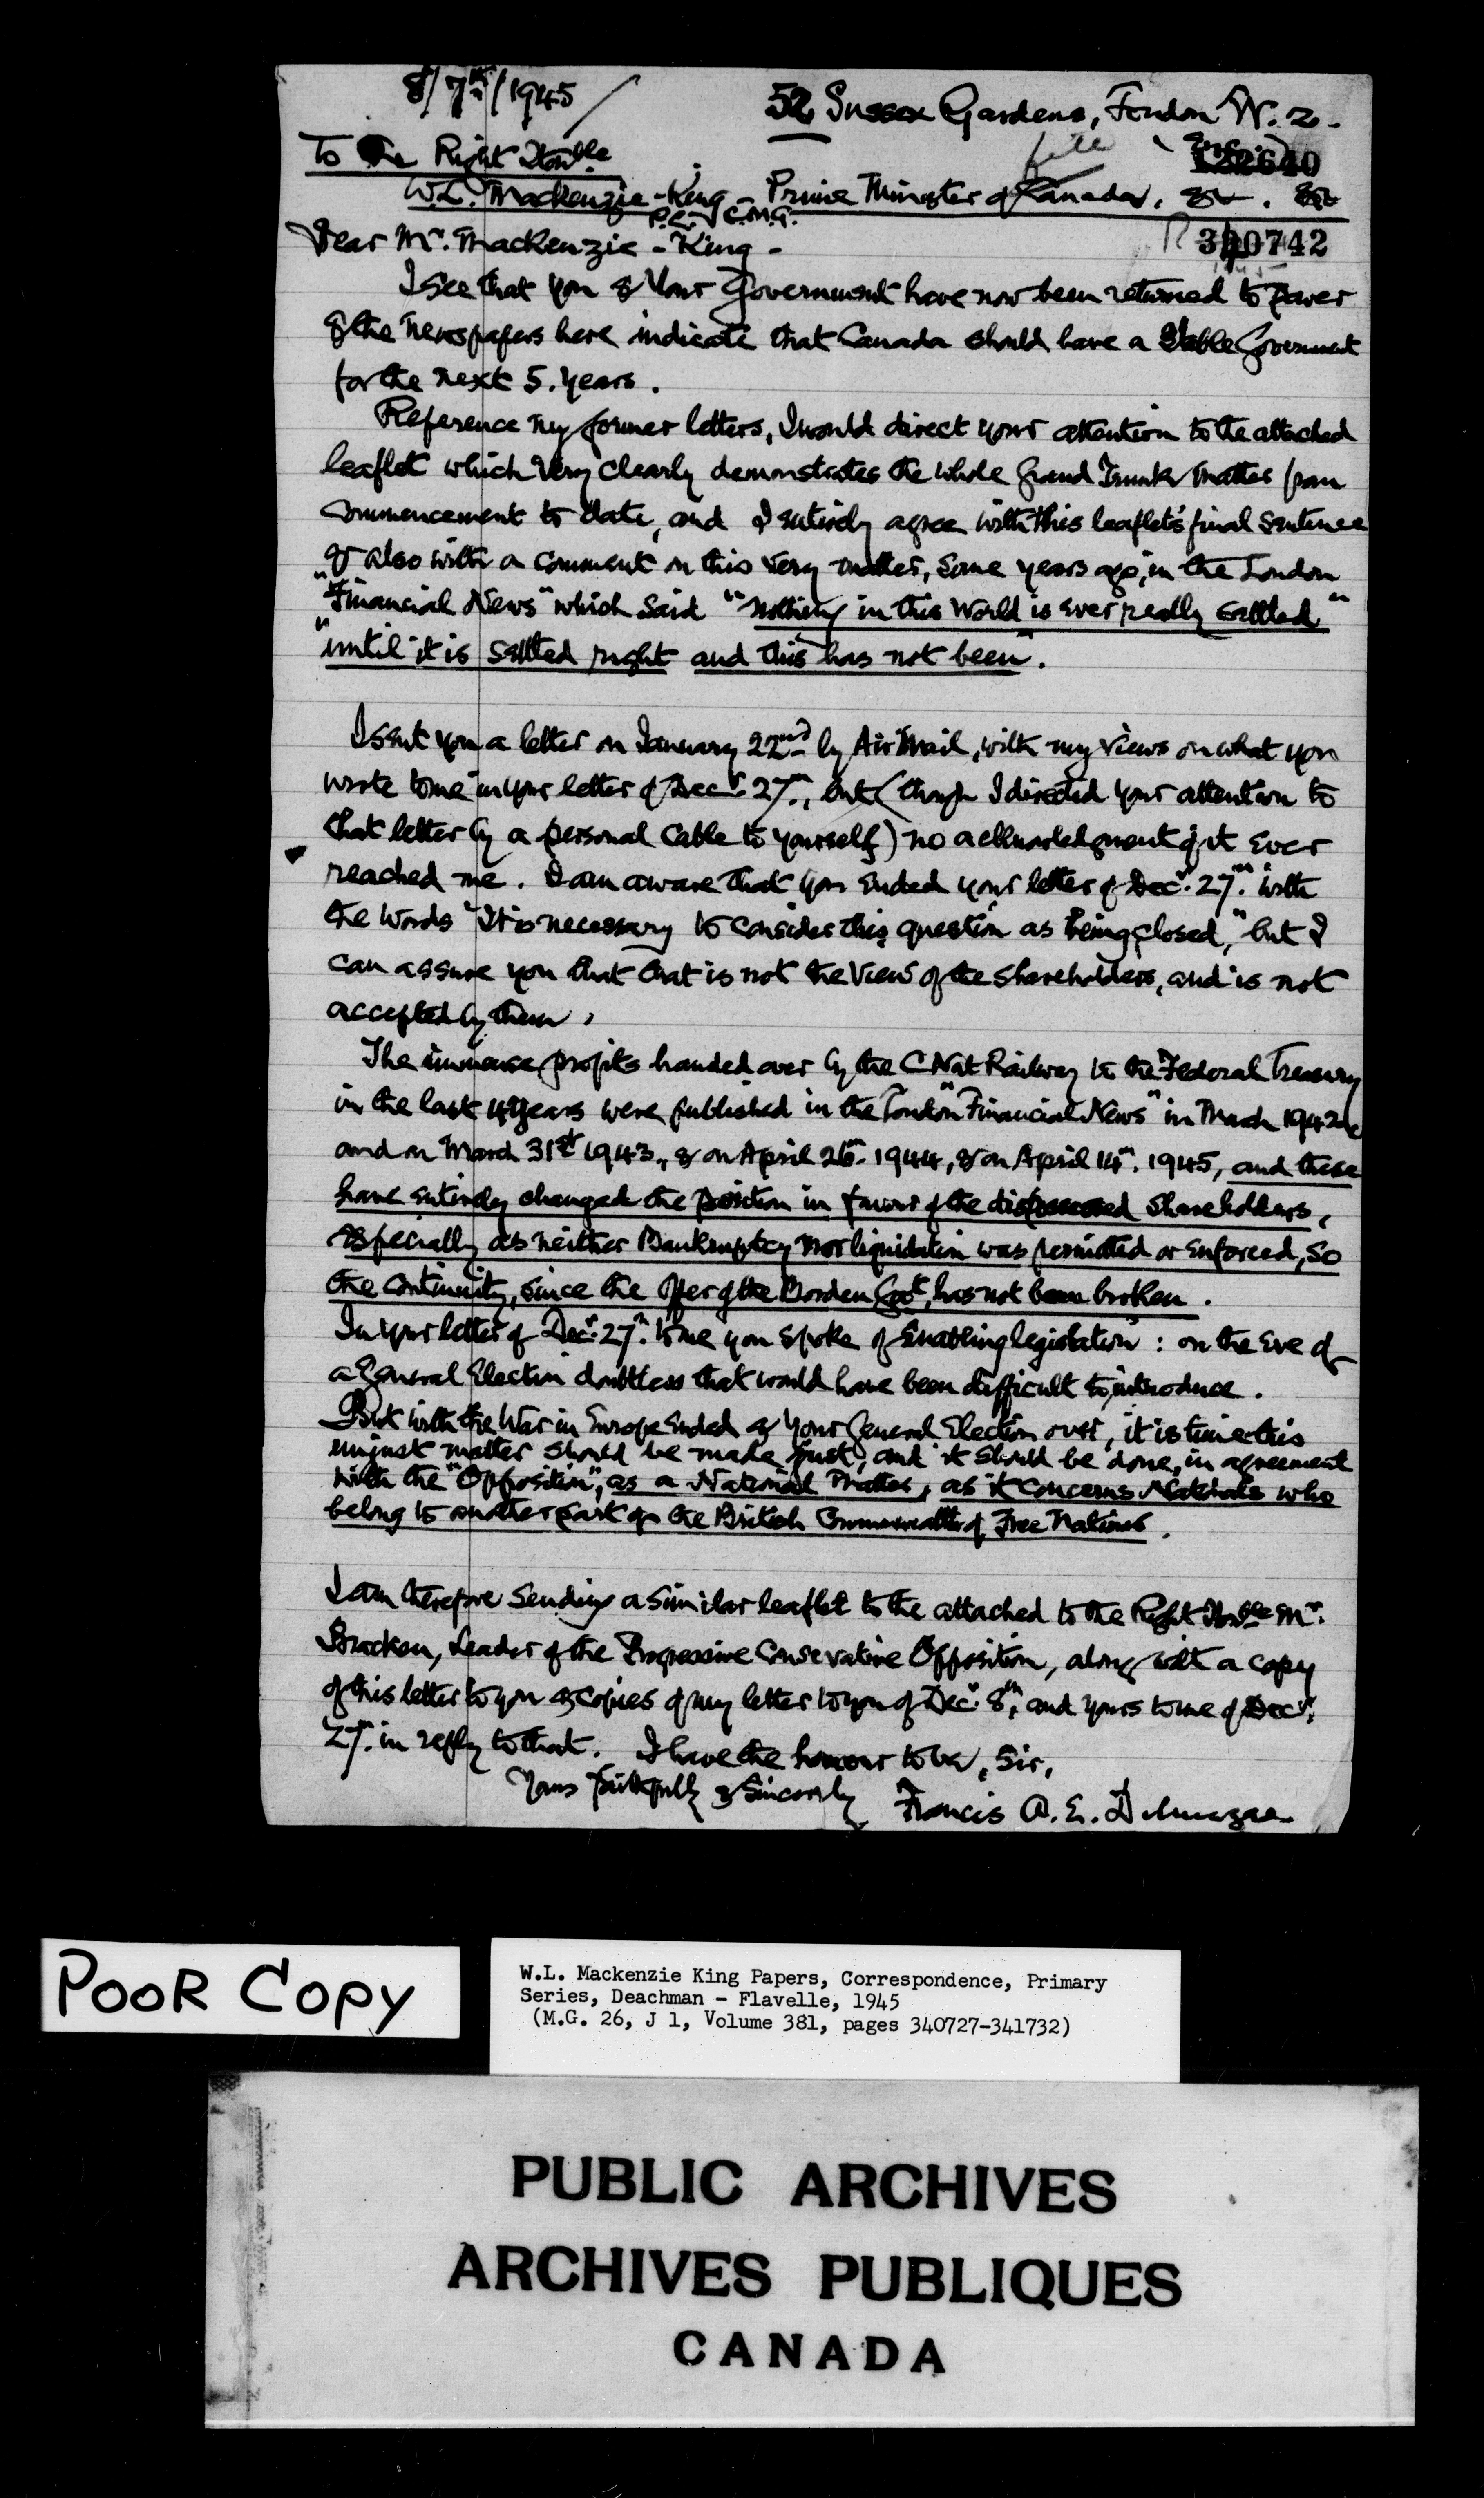 8/7th/1945
52 Sussex Gardens, London W. 2.
file
122640
To The Right Honble
W.L. Mackenzie-King - Prime Minister of Canada, &c. &c
P.C. C.M.G.
R 340742
Dear Mr. Mackenzie-King -
I see that you & Your Government have now been returned to power
& the Newspapers here indicate that Canada should have a Stable Government
for the next 5. years.
Reference my former letters, I would direct your attention to the attached
leaflet which very clearly demonstrates the whole Grand Trunk matter from
Commencement to date, and I entirely agree with this leaflet's final Sentence
& also with a comment on this very matter, some years ago, in the London
"Financial News" which said "Nothing in this World is ever really settled"
"until it is settled right and this has not been".
I sent you a letter on January 22nd by Air Mail, with my views on what you
wrote to me in your letter of Decr 27th, but (though I directed your attention to
that letter by a personal Cable to yourself) no acknowledgment of it ever
reached me. I am aware that you ended your letter of Decr. 27th. with
the words "It is necessary to consider this question as being closed," but I
can assure you that that is not the view of the Shareholders, and is not
accepted by them.
The immense profits handed over by the C Nat Railway to the Federal Treasury
in the last 4 years were published in the London "Financial News" in March 1942
and on March 31st 1943, & on April 26th. 1944, & on April 14th. 1945, and these
have entirely changed the position in favour of the dispossessed Shareholders,
especially as neither Bankruptcy nor liquidation was permitted or enforced, so
the continuity, since the Offer of the Borden Govt, has not been broken.
In your letter of Decr. 27th. to me you spoke of Enabling legislation: on the Eve of
a General Election doubtless that would have been difficult to introduce.
But with the War in Europe ended & Your General Election over, it is time this
unjust matter should be made just, and it should be done, in agreement
with the "Opposition", as a National Matter, as it concerns Nationals who
belong to another part of the British Commonwealth of Free Nations.
I am therefore sending a similar leaflet to the attached to the Right Honble Mr.
Bracken, Leader of the Progressive Conservative Opposition, along with a copy
of this letter to you & copies of my letter to you of Decr 8th, and yours to me of Decr.
27th. in reply to that. I have the honour to be, Sir,
Yours faithfully & Sincerely Francis A. E.
POOR COPY
W.L. Mackenzie King Papers, Correspondence, Primary
Series, Deachman - Flavelle, 1945
(M.G. 26, J 1, Volume 381, pages 340727-341732)
PUBLIC ARCHIVES
ARCHIVES PUBLIQUES
CANADA